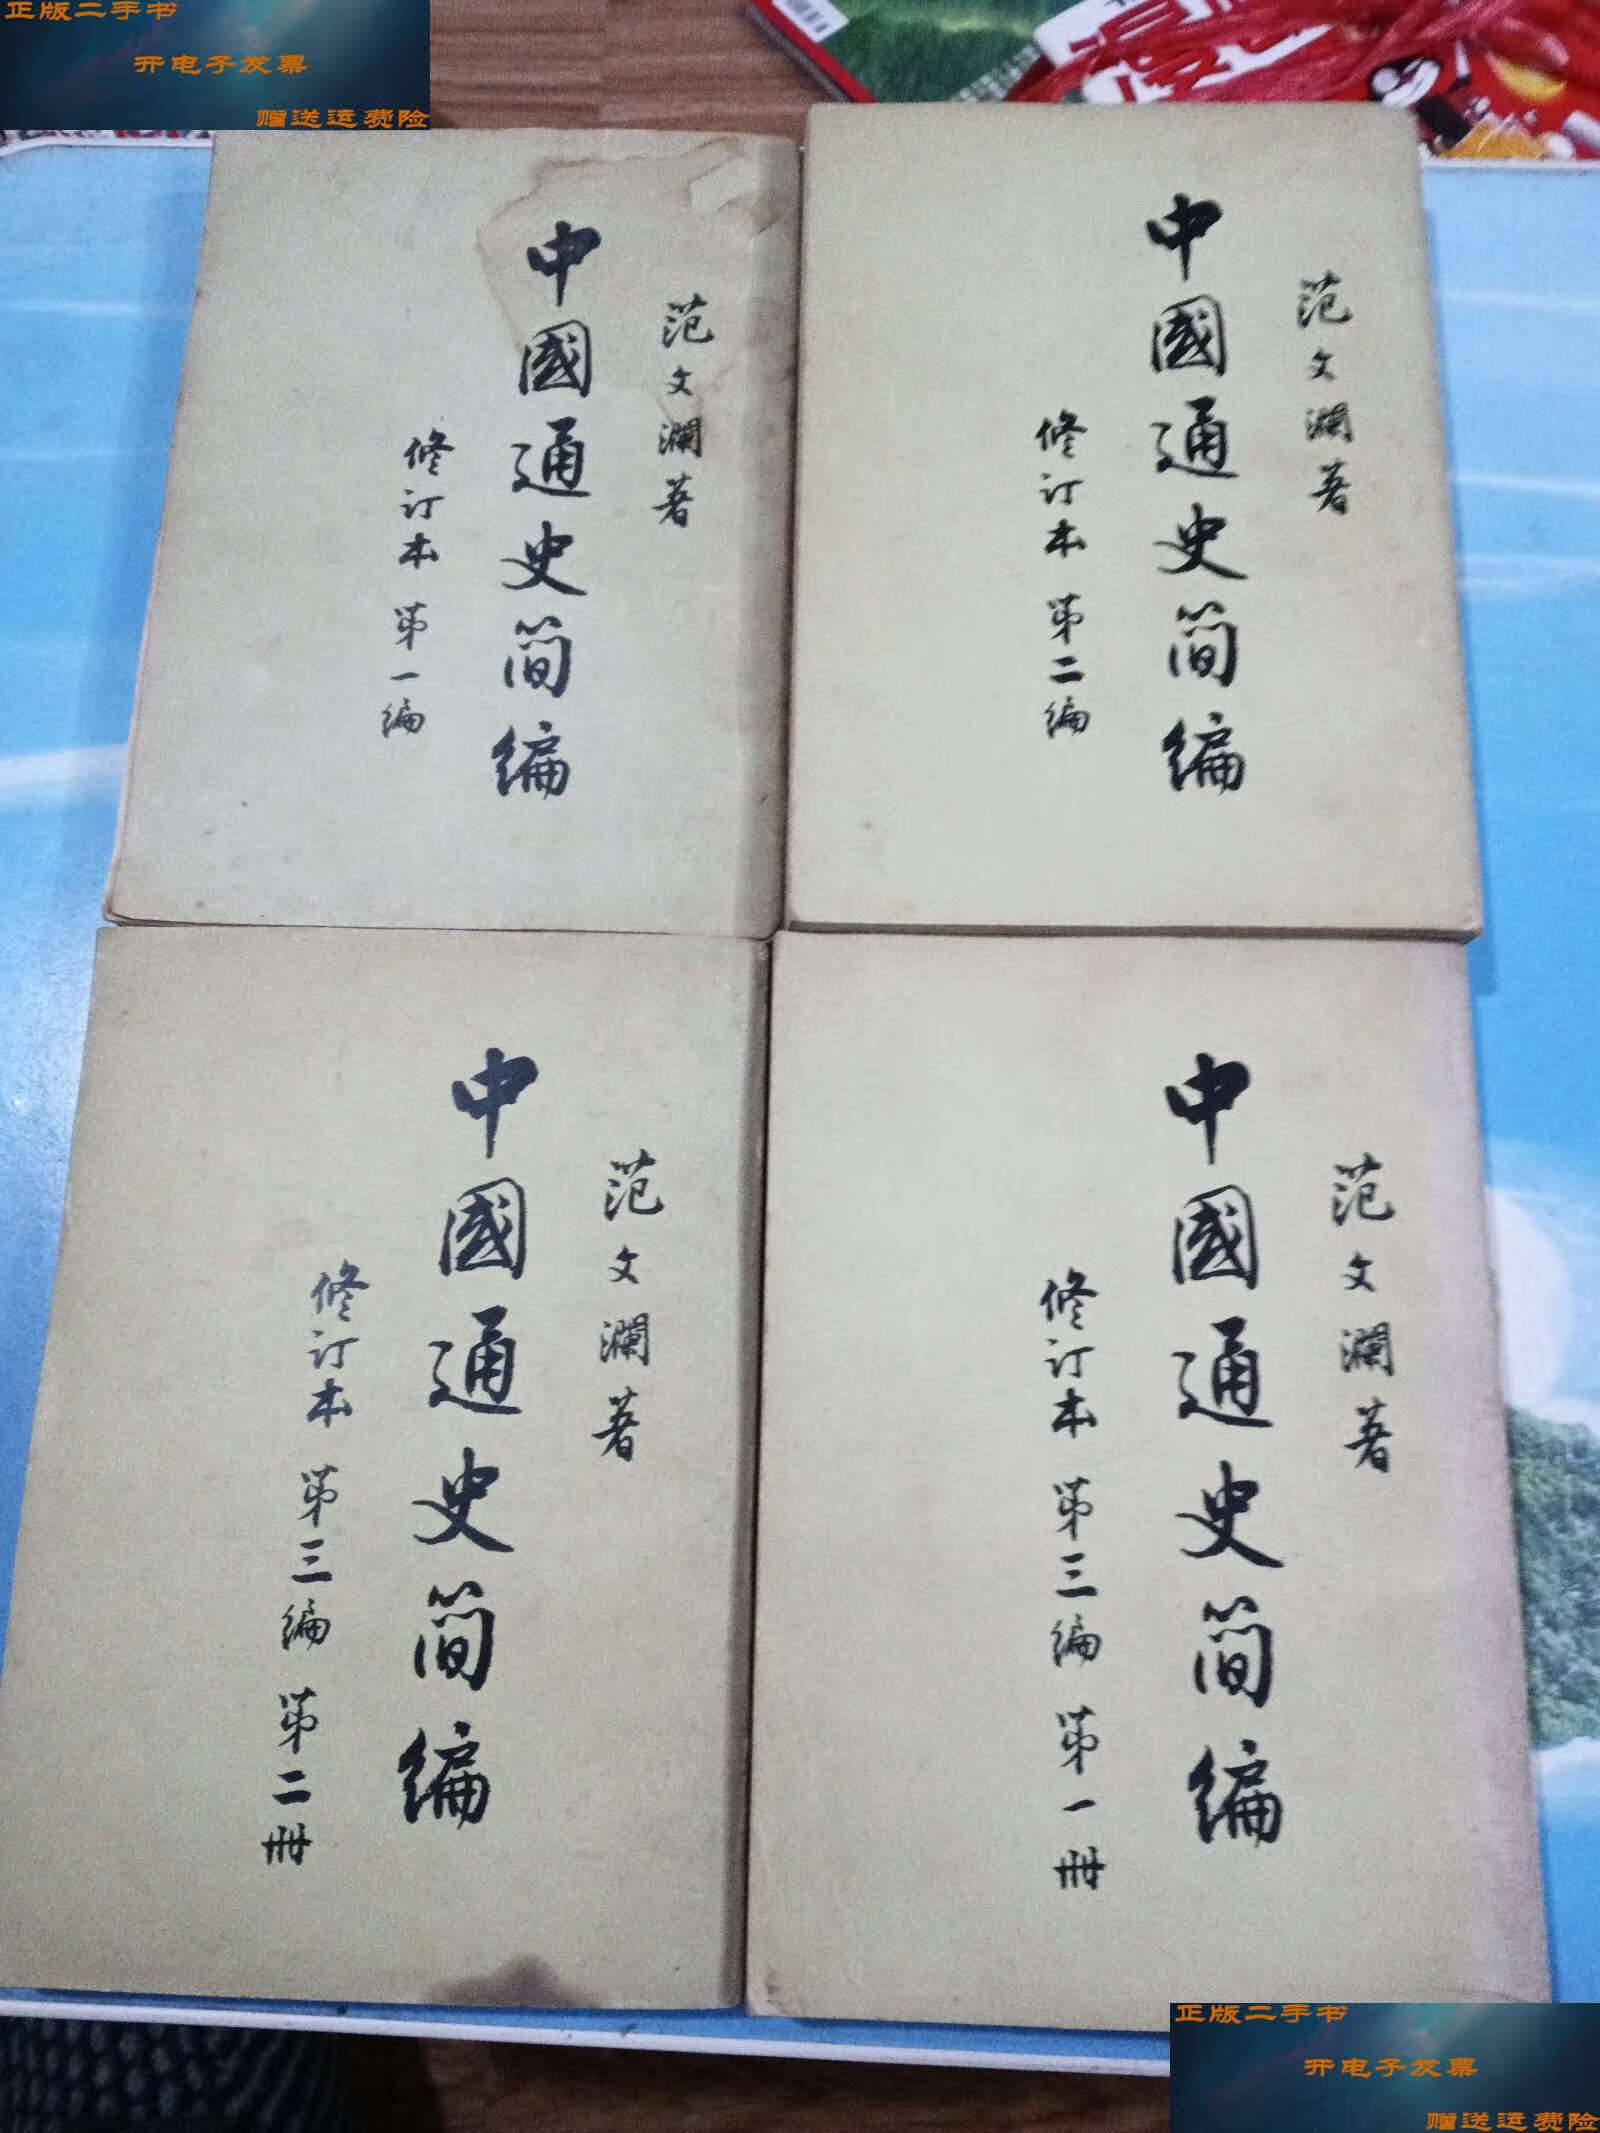 正版二手书
开电子发票
赠送运费险
范文瀾著
中國通史简编
修订本 第一编
范文瀾著
中國通史简编
修订本 第二编
范文瀾著
中國通史简编
修订本 第三编 第二册
范文瀾著
中國通史简编
修订本 第三编 第一册
正版二手书
开电子发票
赠送运费险